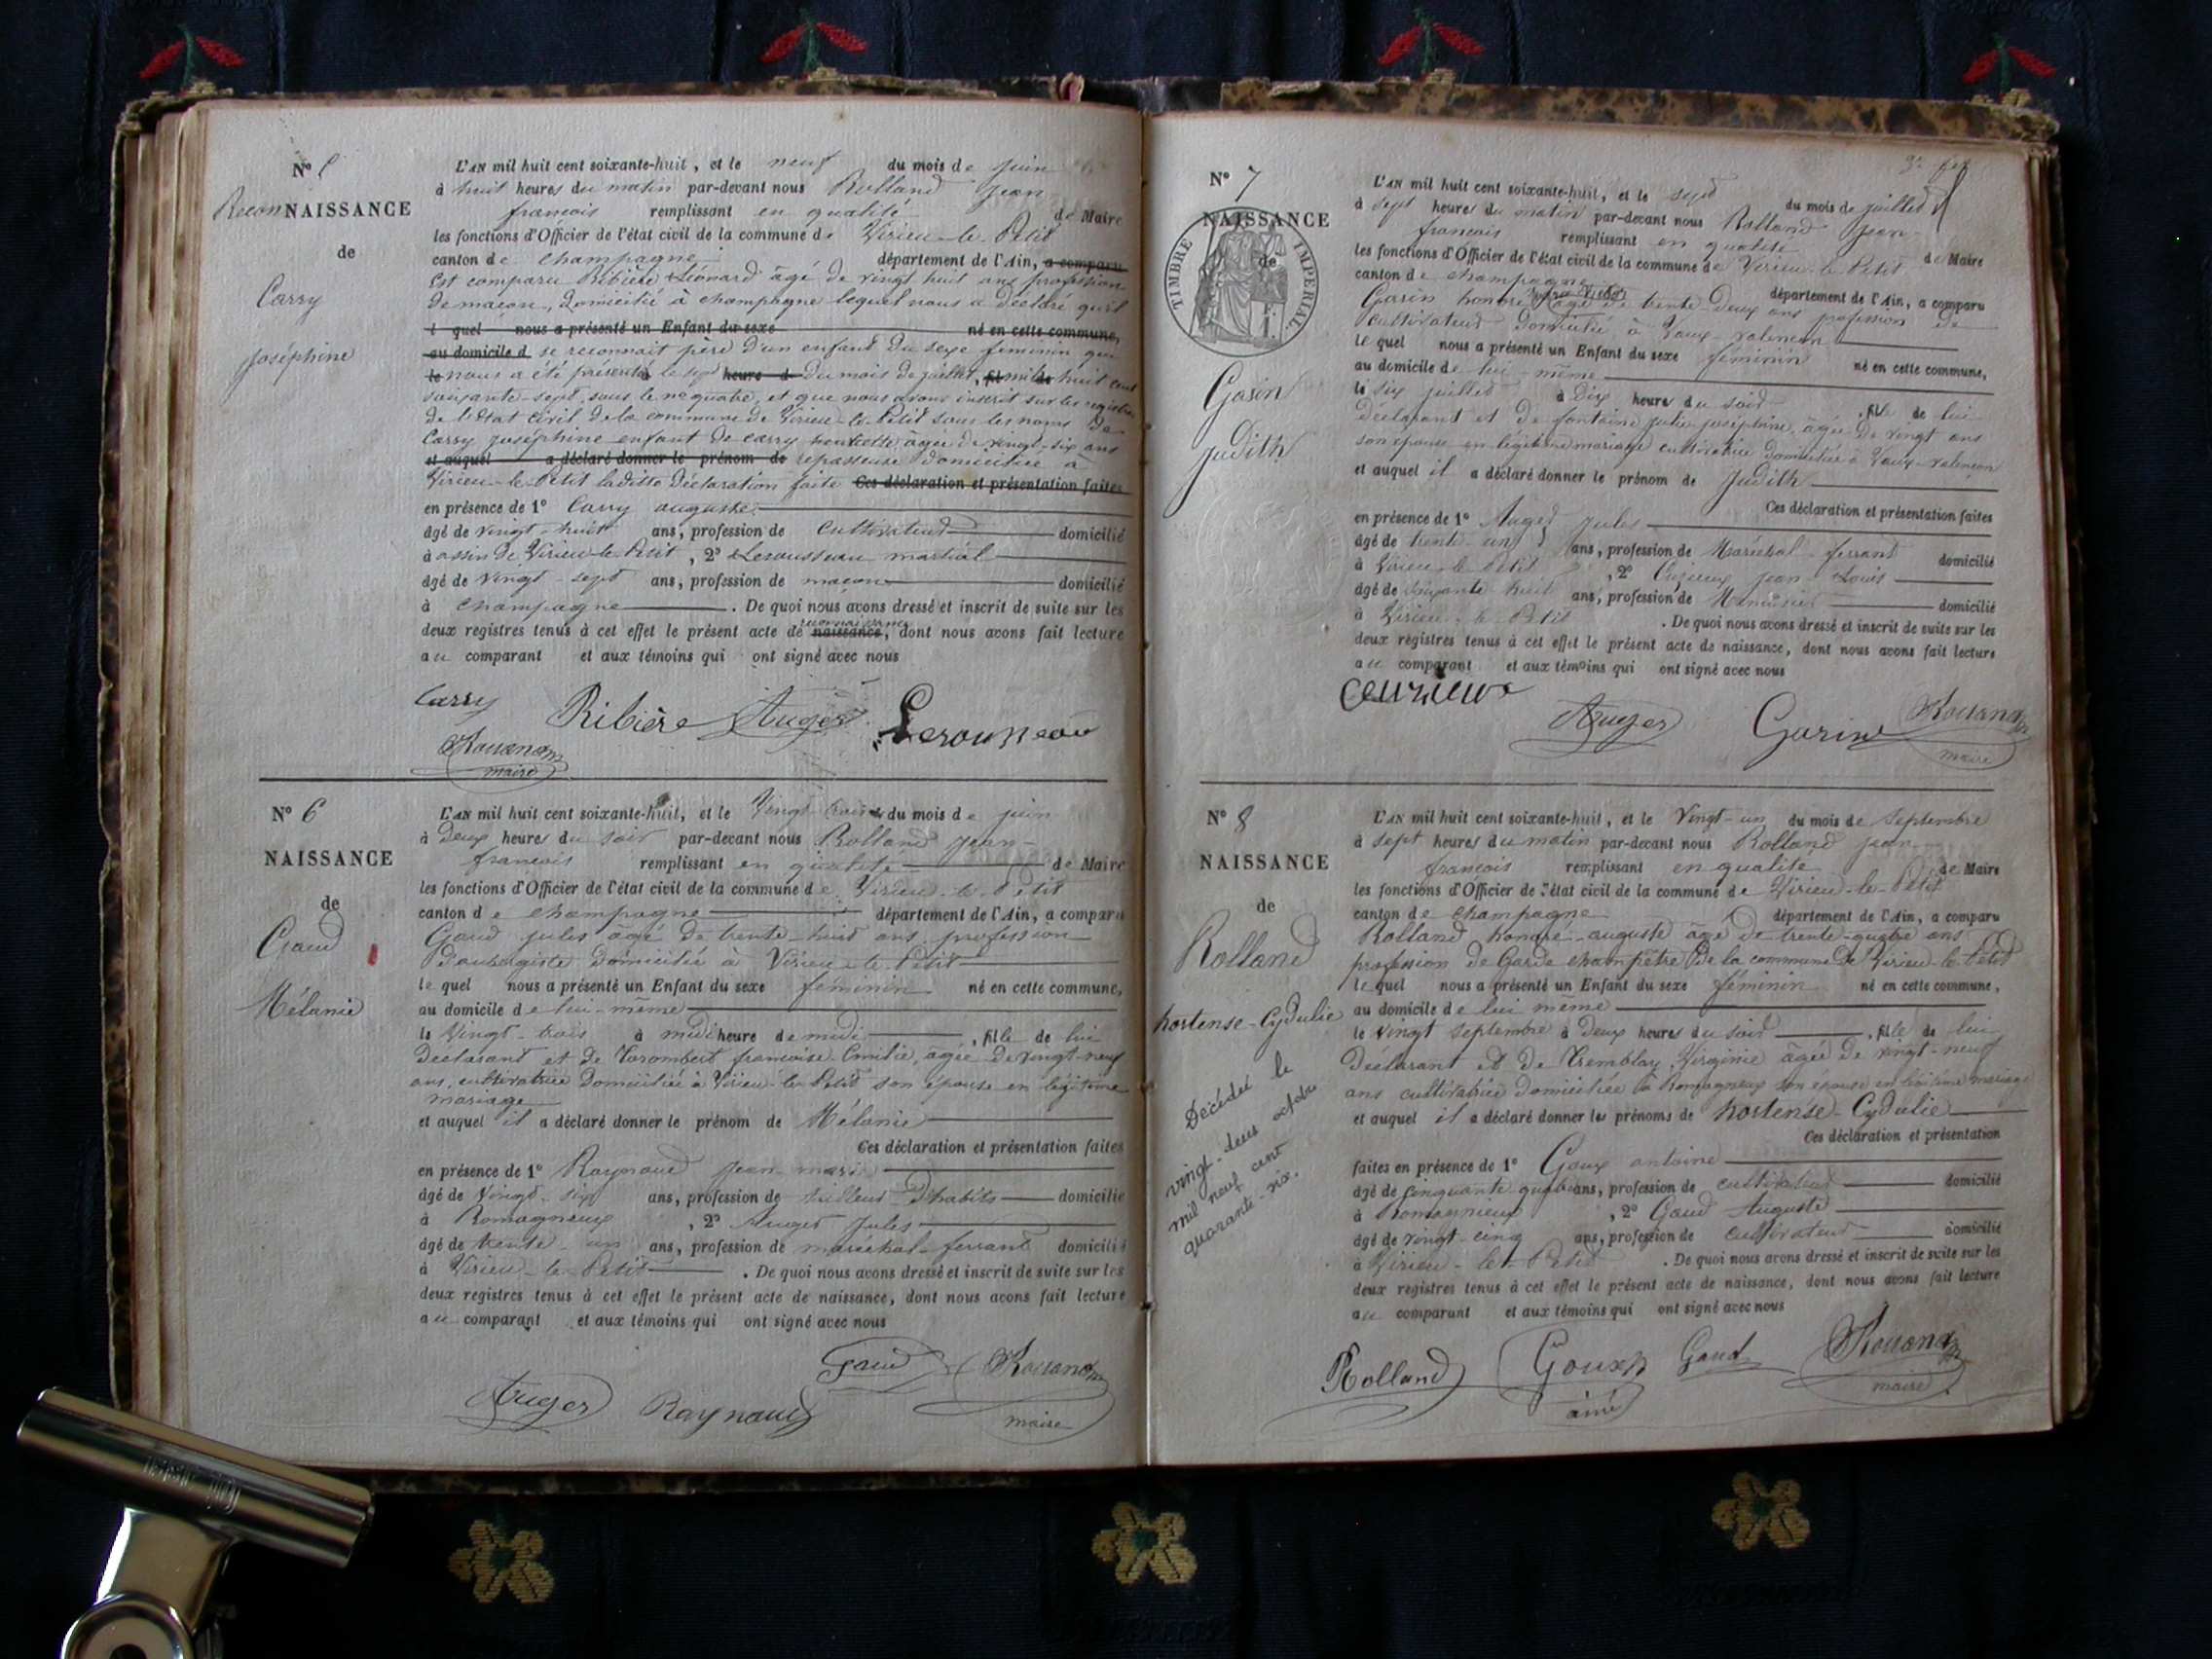 N° 5
ReconNAISSANCE
de
Carry
Joséphine
L'AN mil huit cent soixante-huit, et le neuf du mois de juin
à huit heures du matin par-devant nous Rolland jean
françois remplissant en qualité de Maire
les fonctions d'Officier de l'état civil de la commune de Virieu-le-Petit
canton de champagne département de l'Ain, a comparu
Est comparu Ribière Léonard âgé de vingt huit ans profession
de maçon, domicilié à champagne lequel nous a déclaré qu'il
l quel nous a présenté un Enfant du sexe né en cette commune,
au domicile d se reconnait père d'un enfant du sexe féminin qui
le nous a été présenté le sept heure d du mois de juillet, mil huit cent
soixante-sept, sous le n° quatre, et que nous avons inscrit sur les registres
de l'état civil de la commune de Virieu-le-Petit sous les noms de
Carry joséphine enfant de carry henriette âgée de vingt-six ans
et auquel a déclaré donner le prénom de repasseuse domiciliée à
Virieu-le-Petit la dite déclaration faite Ces déclaration et présentation faites
en présence de 1° Carry auguste
âgé de vingt-huit ans, profession de cultivateur domicilié
à assin de Virieu-le-Petit, 2° Lerousseau martial
âgé de vingt-sept ans, profession de maçon domicilié
à champagne. De quoi nous avons dressé et inscrit de suite sur les
deux registres tenus à cet effet le présent acte de naissance, reconnaissance dont nous avons fait lecture
au comparant et aux témoins qui ont signé avec nous
Carry Ribière Auger Lerousseau
Rolland
maire
N° 6
NAISSANCE
de
Gaud
Mélanie
L'AN mil huit cent soixante-huit, et le Vingt trois du mois de juin
à deux heures du soir par-devant nous Rolland jean-
françois remplissant en qualité de Maire
les fonctions d'Officier de l'état civil de la commune de Virieu-le-Petit
canton de champagne département de l'Ain, a comparu
Gaud jules âgé de trente-huit ans profession
d'aubergiste domicilié à Virieu-le-Petit
le quel nous a présenté un Enfant du sexe féminin né en cette commune,
au domicile de lui-même
le vingt-trois à midi heure de midi, fille de lui
déclarant et de françoise Emilie, âgée de vingt-neuf
ans, cultivatrice domiciliée à Virieu-le-Petit son épouse en légitime
mariage
et auquel il a déclaré donner le prénom de Mélanie
Ces déclaration et présentation faites
en présence de 1° Raynaud jean-marie
âgé de vingt-six ans, profession de tailleur d'habits domicilié
à Romagnieux, 2° Auger jules
âgé de trente-un ans, profession de maréchal-ferrant domicilié
à Virieu-le-Petit. De quoi nous avons dressé et inscrit de suite sur les
deux registres tenus à cet effet le présent acte de naissance, dont nous avons fait lecture
au comparant et aux témoins qui ont signé avec nous
Gaud Rolland
Auger Raynaud maire
N° 7
NAISSANCE
de
TIMBRE IMPERIAL
Garin
Judith
L'AN mil huit cent soixante-huit, et le sept du mois de juillet
à sept heures du matin par-devant nous Rolland jean-
françois remplissant en qualité de Maire
les fonctions d'Officier de l'état civil de la commune de Virieu-le-Petit
canton de champagne département de l'Ain, a comparu
Garin honoré âgé de trente-deux ans profession de
cultivateur domicilié à Vaux-valençon
le quel nous a présenté un Enfant du sexe féminin né en cette commune,
au domicile de lui-même
le six juillet à dix heures du soir, fille de lui
déclarant et de fontaine julie joséphine, âgée de vingt ans
son épouse en légitime mariage cultivatrice domiciliée à Vaux-valençon
et auquel il a déclaré donner le prénom de Judith
Ces déclaration et présentation faites
en présence de 1° Auger jules
âgé de trente-un ans, profession de Maréchal-ferrant domicilié
à Virieu-le-Petit, 2° Cuzieux jean-Louis
âgé de soixante huit ans, profession de Menuisier domicilié
à Virieu-le-Petit. De quoi nous avons dressé et inscrit de suite sur les
deux registres tenus à cet effet le présent acte de naissance, dont nous avons fait lecture
au comparant et aux témoins qui ont signé avec nous
Cuzieux
Auger Garin Rolland
maire
N° 8
NAISSANCE
de
Rolland
hortense-Cydulie
Décédée le
vingt-deux octobre
mil neuf cent
quarante-six.
L'AN mil huit cent soixante-huit, et le Vingt-un du mois de Septembre
à sept heures du matin par-devant nous Rolland jean-
françois remplissant en qualité de Maire
les fonctions d'Officier de l'état civil de la commune de Virieu-le-Petit
canton de champagne département de l'Ain, a comparu
Rolland honoré-auguste âgé de trente-quatre ans
profession de Garde champêtre de la commune de Virieu-le-Petit
le quel nous a présenté un Enfant du sexe féminin né en cette commune,
au domicile de lui même
le vingt septembre à deux heures du soir, fille de lui
déclarant et de Tremblay Virginie âgée de vingt-neuf
ans cultivatrice domiciliée à Romagnieux son épouse en légitime mariage
et auquel il a déclaré donner les prénoms de hortense-Cydulie
Ces déclaration et présentation
faites en présence de 1° Goux antoine
âgé de cinquante quatre ans, profession de cultivateur domicilié
à Romagnieux, 2° Gaud Auguste
âgé de vingt-cinq ans, profession de cultivateur domicilié
à Virieu-le-Petit. De quoi nous avons dressé et inscrit de suite sur les
deux registres tenus à cet effet le présent acte de naissance, dont nous avons fait lecture
au comparant et aux témoins qui ont signé avec nous
Rolland Goux Gaud Rolland
ainé maire